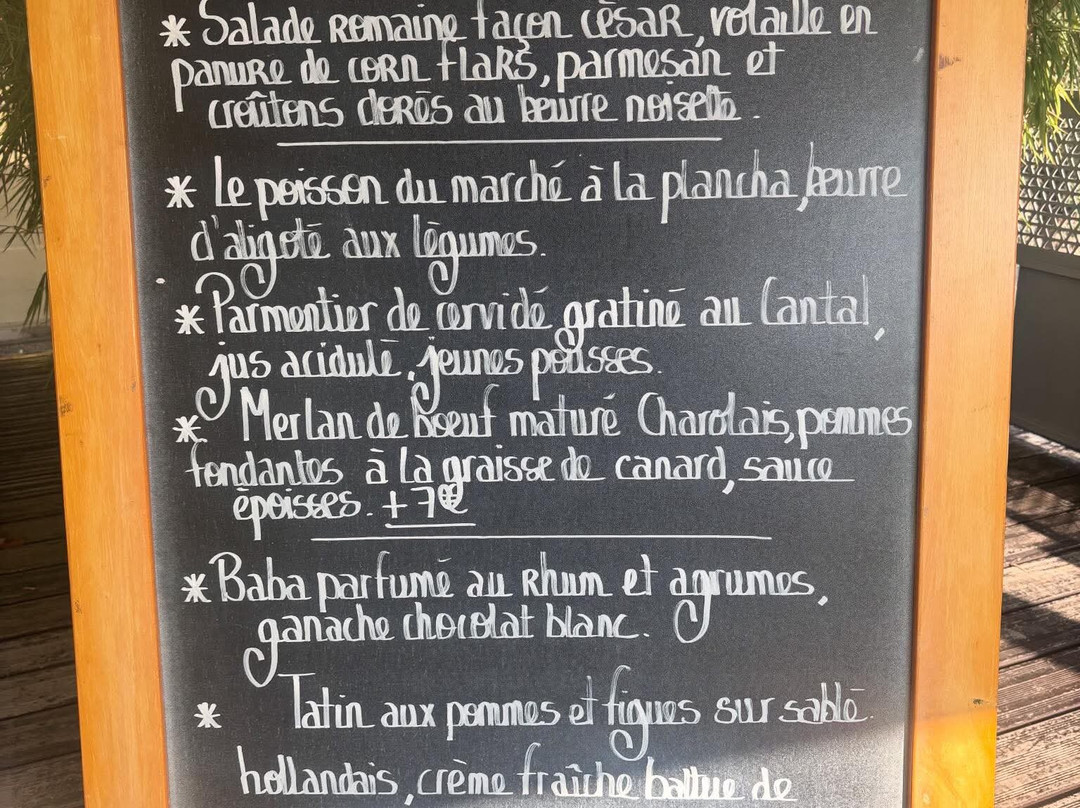 * Salade Romaine façon césar, volaille en
panure de corn flaks, parmesan et
croûtons dorés au beurre noisette.
* Le poisson du marché à la plancha, beurre
d'aligoté aux légumes.
* Parmentier de cervidé gratiné au Cantal,
jus acidulé, jeunes pousses.
* Merlan de Boeuf maturé Charolais, pommes
fondantes à la graisse de canard, sauce
époisses. + 7€
* Baba parfumé au Rhum et agrumes,
ganache chocolat blanc.
* Tatin aux pommes et figues sur sablé
hollandais, crème fraîche battue de